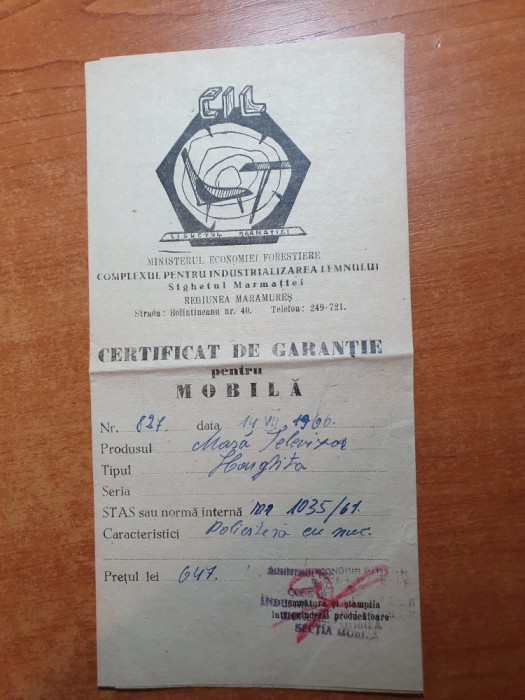 CIL
SIGHETUL MARMATIEI
MINISTERUL ECONOMIEI FORESTIERE
COMPLEXUL PENTRU INDUSTRIALIZAREA LEMNULUI
Sighetul Marmației
REGIUNEA MARAMUREȘ
Strada: Bolintineanu nr. 40. Telefon: 249-721.
CERTIFICAT DE GARANȚIE
pentru
MOBILĂ
Nr. 827 data 14 VII 1966.
Produsul Masă Televizor
Tipul Harghita
Seria
STAS sau normă internă 1035/61.
Caracteristici Poliesteră cu nuc.
Prețul lei 647.
semnătura și ștampila
întreprinderei producătoare
SECȚIA MOBILĂ